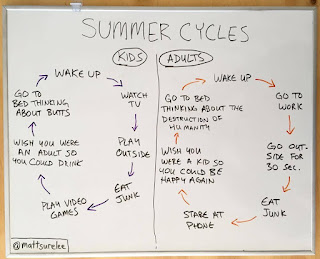 SUMMER CYCLES
KIDS
WAKE UP
WATCH
TV
PLAY
OUTSIDE
EAT
JUNK
PLAY VIDEO
GAMES
WISH YOU WERE
AN ADULT SO
YOU COULD DRINK
GO TO
BED THINKING
ABOUT BUTTS
ADULTS
WAKE UP
GO TO
WORK
GO OUT-
SIDE FOR
30 SEC.
EAT
JUNK
STARE AT
PHONE
WISH YOU
WERE A KID SO
YOU COULD BE
HAPPY AGAIN
GO TO BED
THINKING ABOUT THE
DESTRUCTION OF
HUMANITY
@mattsurelee